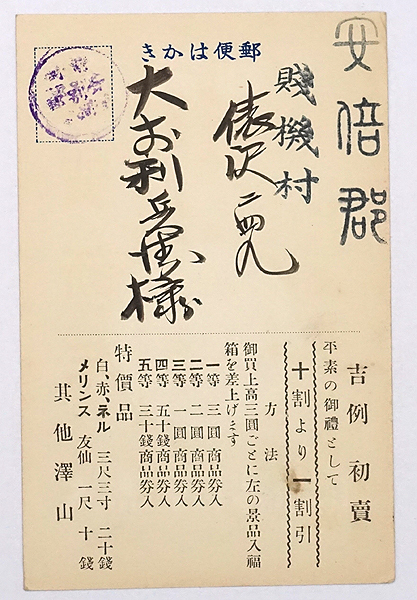 郵便はかき
安倍郡
賤機村
俵沢二四九
様
吉例初賣
平素の御禮として
十割より一割引
方法
御買上高三圓ごとに左の景品入福
箱を差上げます
一等 三圓商品券入
二等 二圓商品券入
三等 一圓商品券入
四等 五十錢商品券入
五等 三十錢商品券入
特價品
白、赤、ネル 三尺三寸 二十錢
メリンス 友仙 一尺 十錢
其他澤山